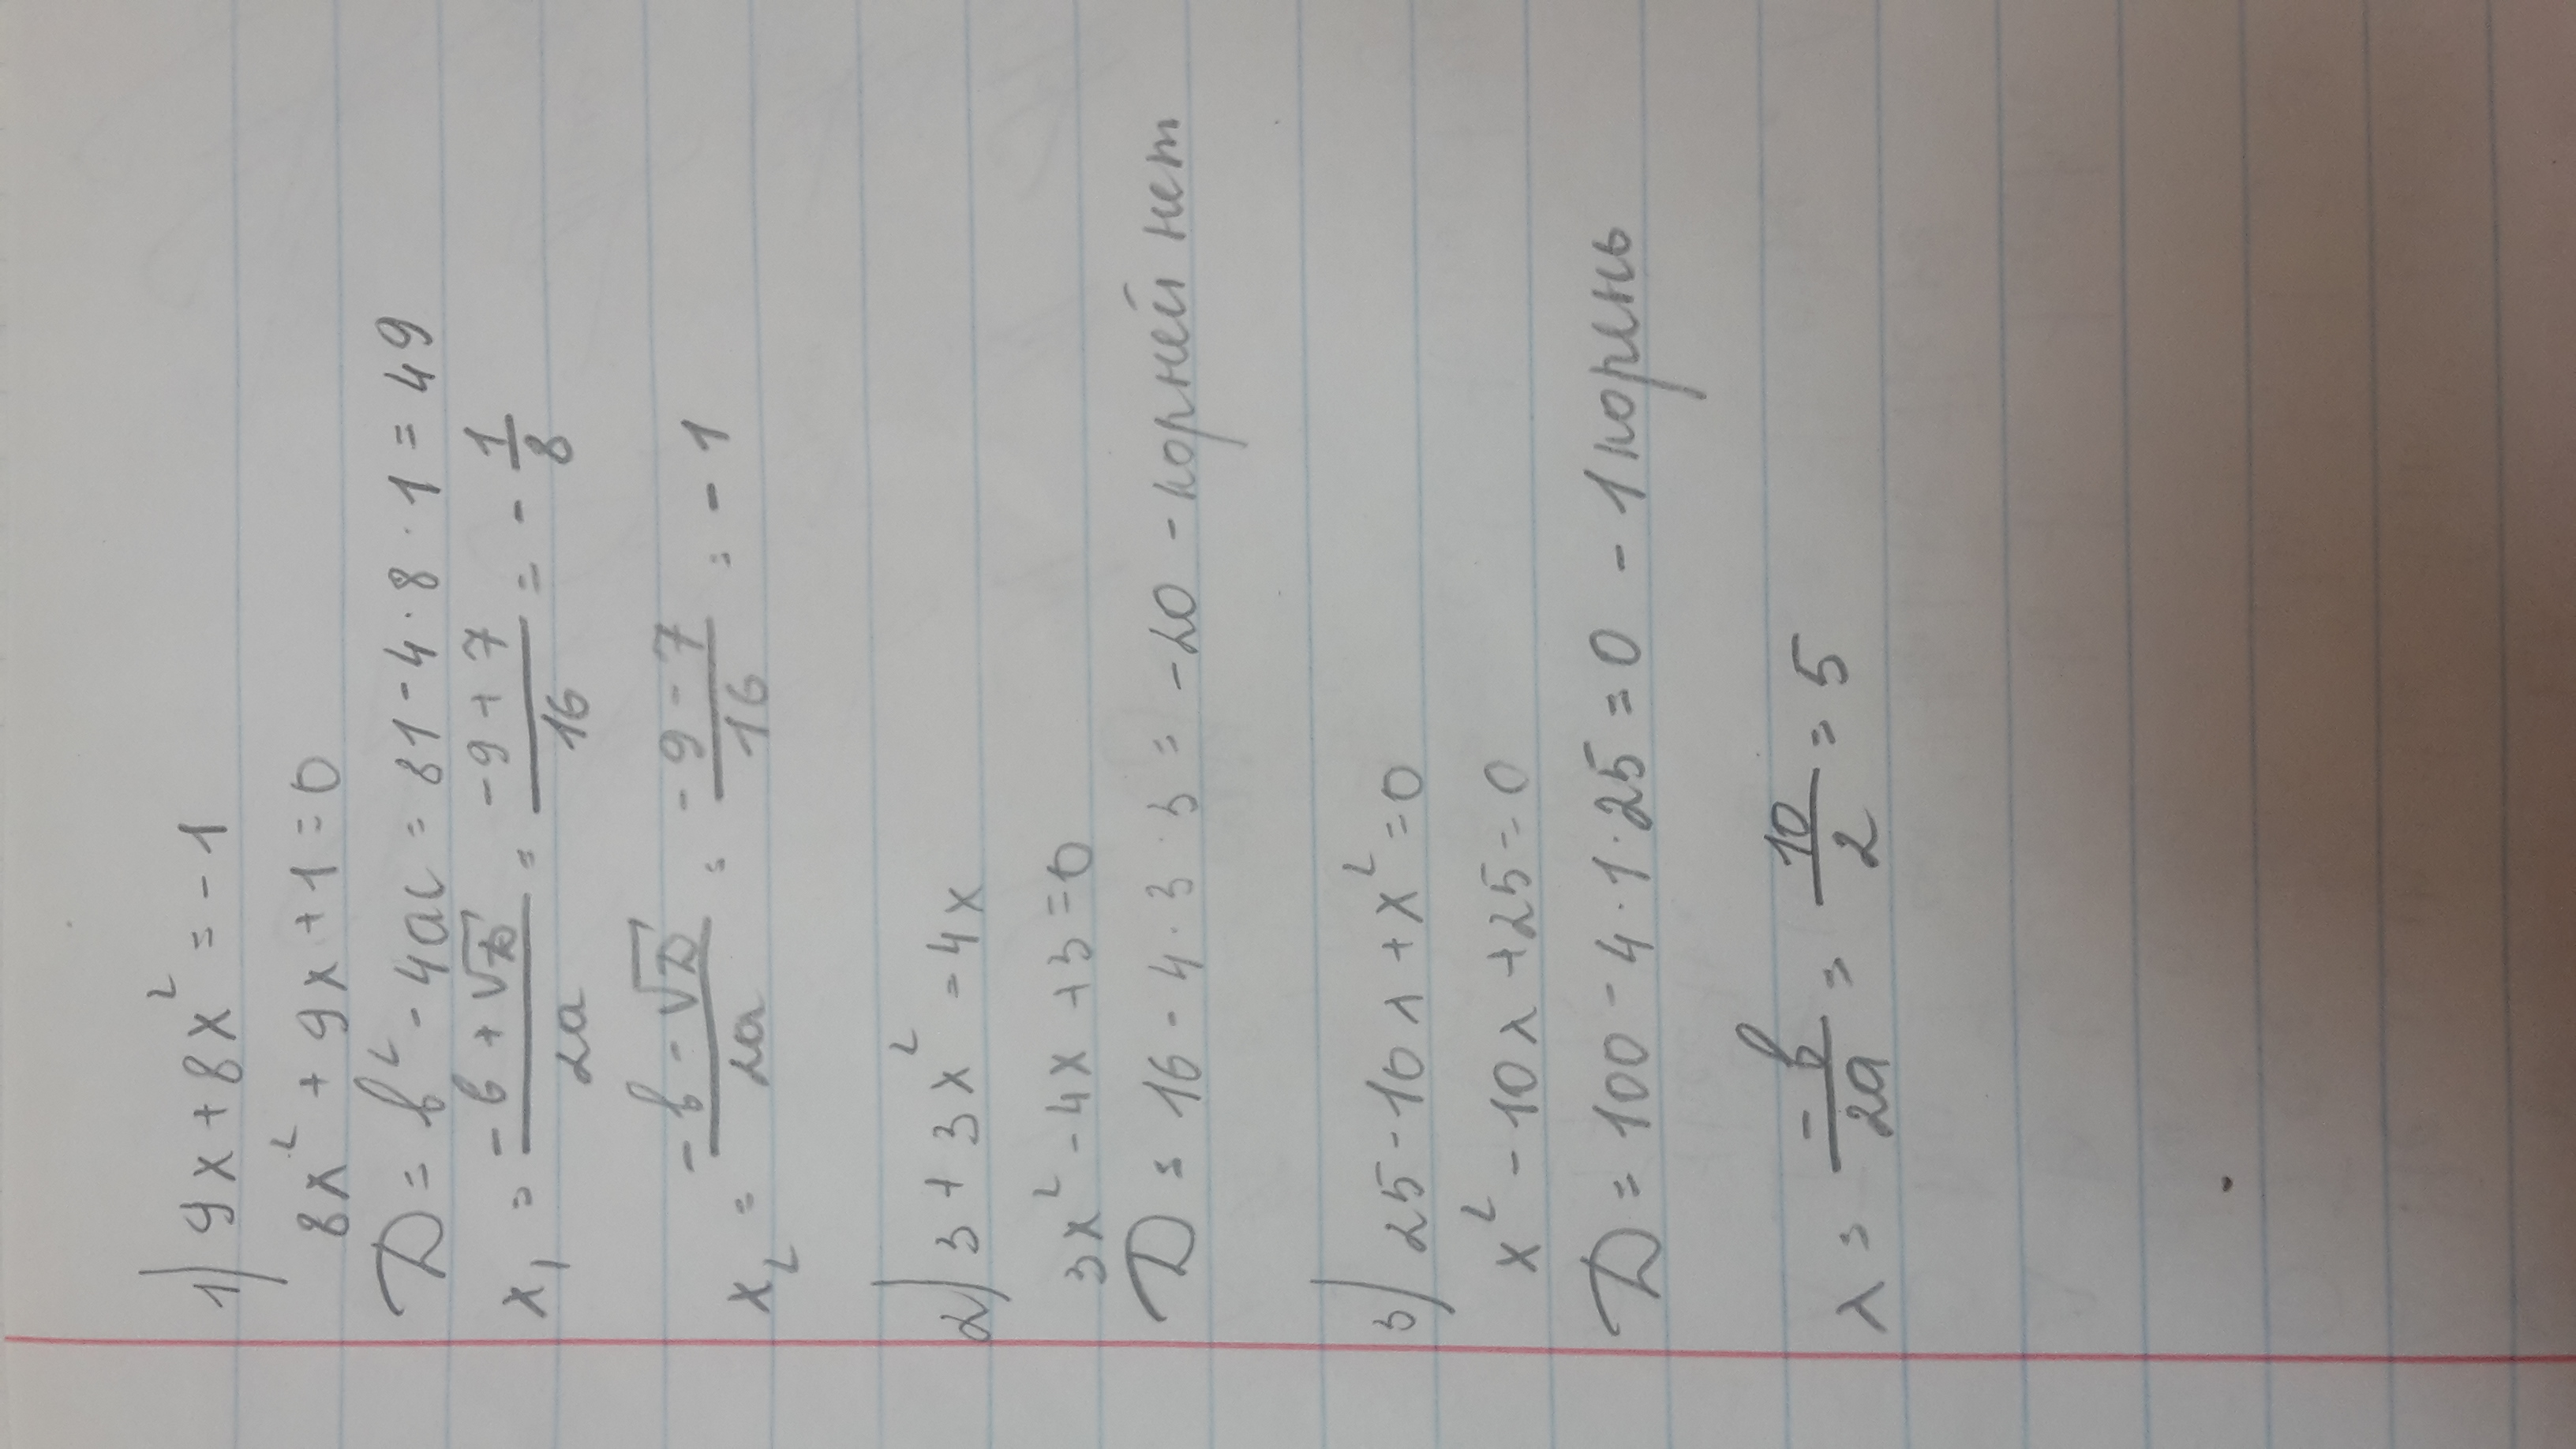 1) 9x + 8x² = -1
8x² + 9x + 1 = 0
D = b² - 4ac = 81 - 4 · 8 · 1 = 49
x₁ = (-b + √D)/2a = (-9 + 7)/16 = - 1/8
x₂ = (-b - √D)/2a = (-9 - 7)/16 = - 1
2) 3 + 3x² = 4x
3x² - 4x + 3 = 0
D = 16 - 4 · 3 · 3 = -20 - корней нет
3) 25 - 10x + x² = 0
x² - 10x + 25 = 0
D = 100 - 4 · 1 · 25 = 0 - 1 корень
x = -b/2a = 10/2 = 5